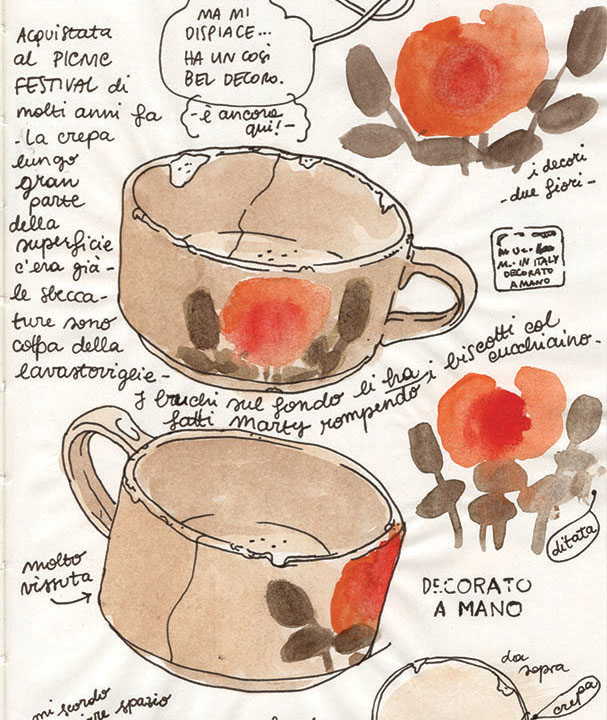 MA MI
DISPIACE...
HA UN COSÌ
BEL DECORO.
- è ancora
qui! -
Acquistata
al PICNIC
FESTIVAL di
molti anni fa
- La crepa
lungo
gran
parte
della
superficie
c'era già -
le sbecca-
ture sono
colpa della
lavastoviglie -
i decori
- due fiori -
IN ITALY
DECORATO
A MANO
I buchi sul fondo li ha
fatti Marty rompendo i biscotti col
cucchiaino -
ditata
molto
vissuta
DECORATO
A MANO
da
sopra
crepa
mi scordo
spazio